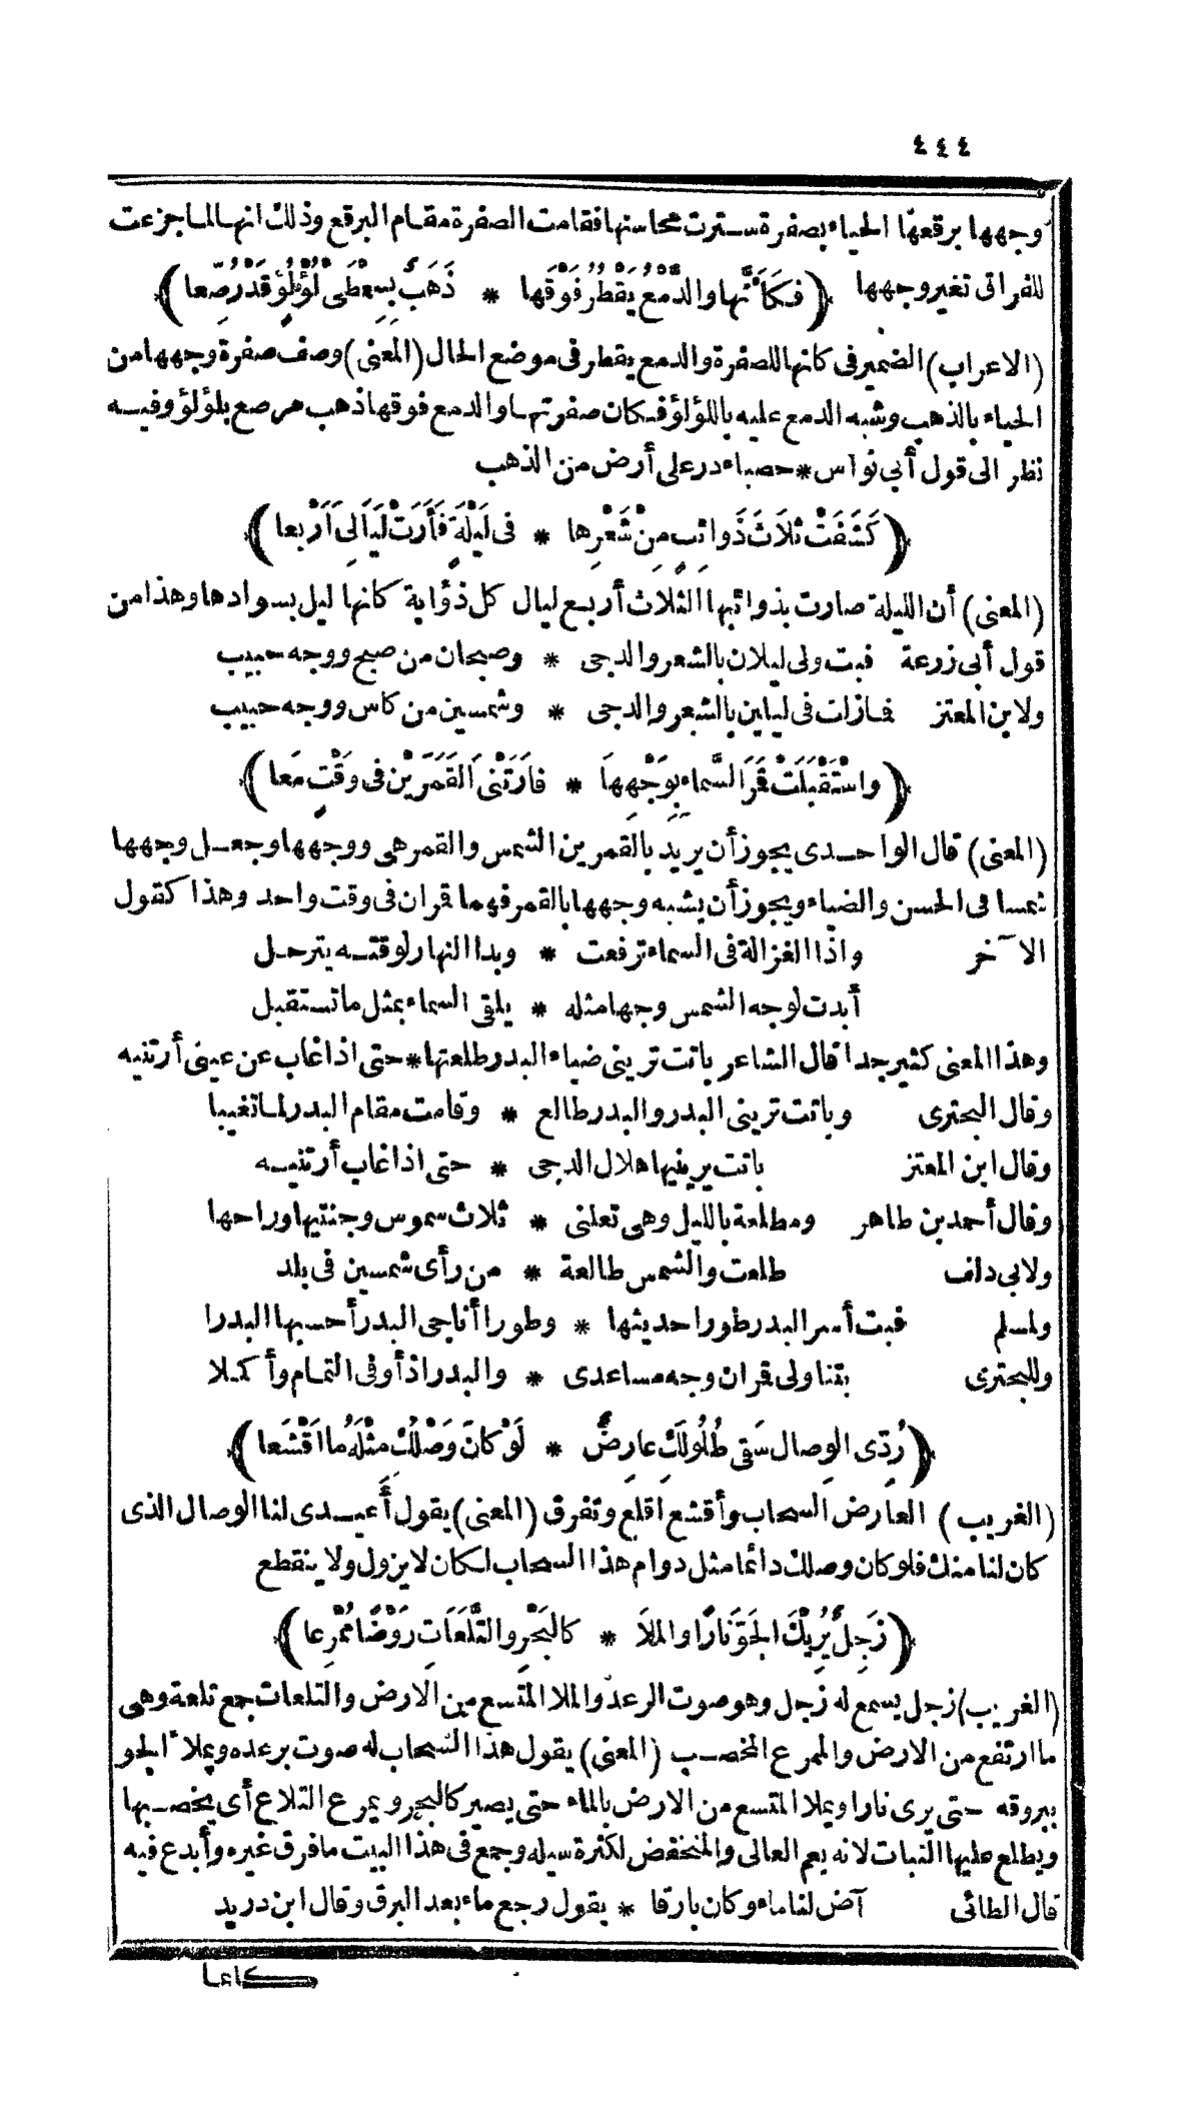 ٤٤٤
وجهها برقعها الحياء بصفرة سترت محاسنها فقامت الصفرة مقام البرقع وذلك انها لما جزعت
للفراق تغير وجهها ﴿فَكَأَنَّها والدَّمْعُ يَقْطُرُ فَوْقَها * ذَهَبٌ بِسِمْطَىْ لُؤْلُؤٍ قَدْ رُصِّعا﴾
(الاعراب) الضمير فى كانها للصفرة والدمع يقطر فى موضع الحال (المعنى) وصف صفرة وجهها من
الحياء بالذهب وشبه الدمع عليه باللؤلؤ فكان صفرتها والدمع فوقها ذهب مرصع بلؤلؤ وفيه
نظر الى قول أبي نواس * حصباء در على أرض من الذهب
﴿كَشَفَتْ ثَلاَثَ ذَوائبٍ مِنْ شَعْرِها * فى لَيْلَةٍ فَأَرَتْ لَيَالِىَ اَرْبعا﴾
(المعنى) أن الليلة صارت بذوائبها الثلاث أربع ليال كل ذؤابة كانها ليل بسوادها وهذا من
قول أبى زرعة فبت ولى ليلان بالشعر والدجى * وصبحان من صبح ووجه حبيب
ولابن المعتز فمازلت فى ليلين بالشعر والدجى * وشمسين من كاس ووجه حبيب
﴿واسْتَقْبَلَتْ قَمَرَ السَّماءِ بِوَجْهِهاَ * فَارَتْنِىَ القَمَرَيْنِ فى وَقْتٍ مَعا﴾
(المعنى) قال الواحدى يجوز أن يريد بالقمرين الشمس والقمر هى ووجهها وجعل وجهها
شمسا فى الحسن والضياء ويجوز أن يشبه وجهها بالقمر فهما قمران فى وقت واحد وهذا كقول
الآخر واذا الغزالة فى السماء ترفعت * وبدا النهار لوقته يترحل
أبدت لوجه الشمس وجها مثله * يلقى السماء بمثل ما تستقبل
وهذا المعنى كثير جدا قال الشاعر باتت ترينى ضياء البدر طلعتها * حتى اذا غاب عن عينى أرتنيه
وقال البحترى وباتت ترينى البدر والبدر طالع * وقامت مقام البدر لما تغيبا
وقال ابن المعتز باتت يرينيها هلال الدجى * حتى اذا غاب أرتنيه
وقال أحمد بن طاهر ومطلعة بالليل وهى تعلنى * ثلاث شموس وجنتيها وراحها
ولابى دلف طلعت والشمس طالعة * من رأى شمسين فى بلد
ولمسلم فبت أسر البدر طورا حديثها * وطورا أناجى البدر أحسبها البدرا
وللبحترى بتنا ولى قمران وجه مساعدى * والبدر اذ أوفى التمام وأكملا
﴿رُدِّى الوِصالَ سَقَى طُلُولَكِ عارِضٌ * لَوْ كانَ وَصْلُكِ مِثْلَهُ ما اَقْشَعا﴾
(الغريب) العارض السحاب وأقشع اقلع وتفرق (المعنى) يقول أعيدى لنا الوصال الذى
كان لنا منك فلو كان وصلك دائما مثل دوام هذا السحاب لكان لا يزول ولا ينقطع
﴿زَجِلٌ يُرِيْكَ الجَوَّ نَارًا والملَا * كالبَحْرِ والتَّلَعَاتِ رَوْضًا مُمْرِعا﴾
(الغريب) زجل يسمع له زجل وهو صوت الرعد والملا المتسع من الارض والتلعات جمع تلعة وهى
ما ارتفع من الارض والممرع المخصب (المعنى) يقول هذا السحاب له صوت برعده ويملأ الجو
ببروقه حتى يرى نارا ويملا المتسع من الارض بالماء حتى يصير كالبحر ويمرع التلاع أى يخصبها
ويطلع عليها النبات لانه يعم العالى والمنخفض لكثرة سيله وجمع فى هذا البيت ما فرق غيره وأبدع فيه
قال الطائى آض لنا ماء وكان بارقا * يقول رجع ماء بعد البرق وقال ابن دريد
كانما